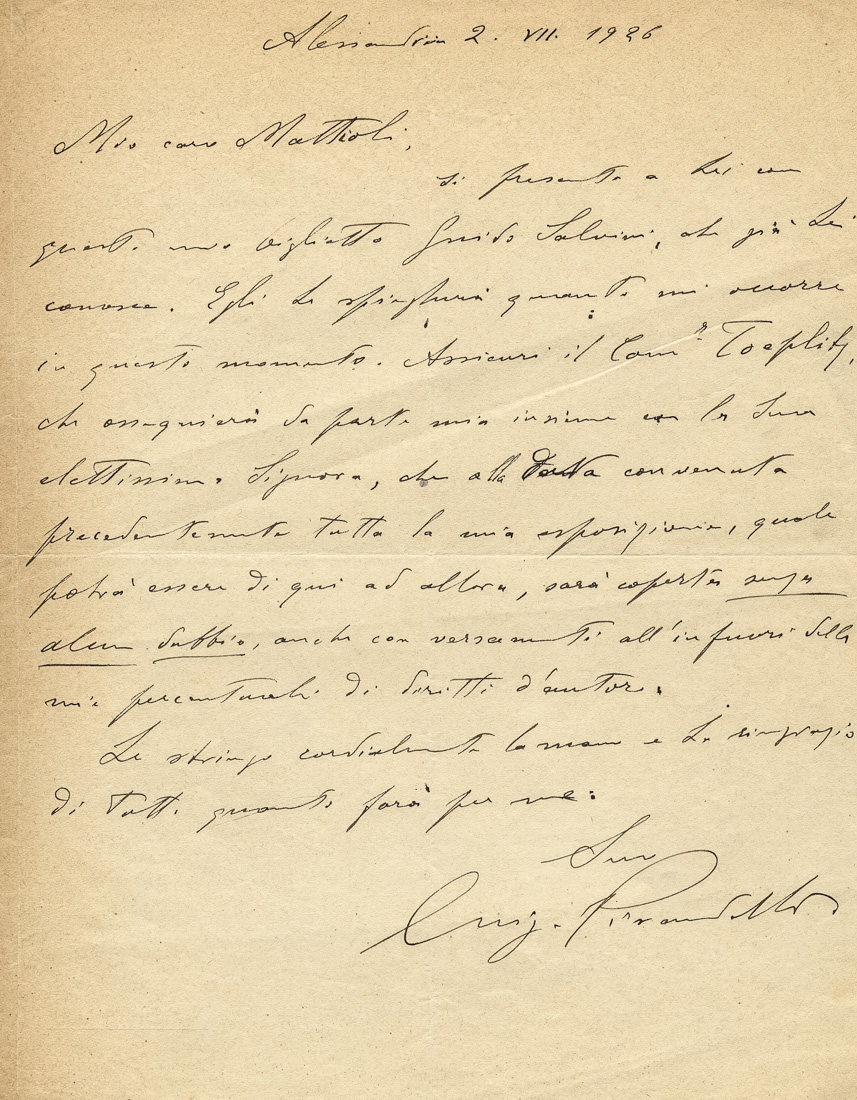 Alessandria 2. VII. 1926
Mio caro Mattioli,
si presenta a Lei con
questo mio biglietto Guido Salvini, che già Lei
conosce. Egli Le spiegherà quanto mi occorre
in questo momento. Assicuri il Comm.r Toeplitz,
che ossequierà da parte mia insieme con la Sua
elettissima Signora, che alla data convenuta
precedentemente tutta la mia esposizione, quale
potrà essere di qui ad allora, sarà coperta senza
alcun dubbio, anche con versamenti all'infuori delle
mie percentuali di diritti d'autore.
Le stringo cordialmente la mano e La ringrazio
di tutto quanto farà per me:
Suo
Luigi Pirandello